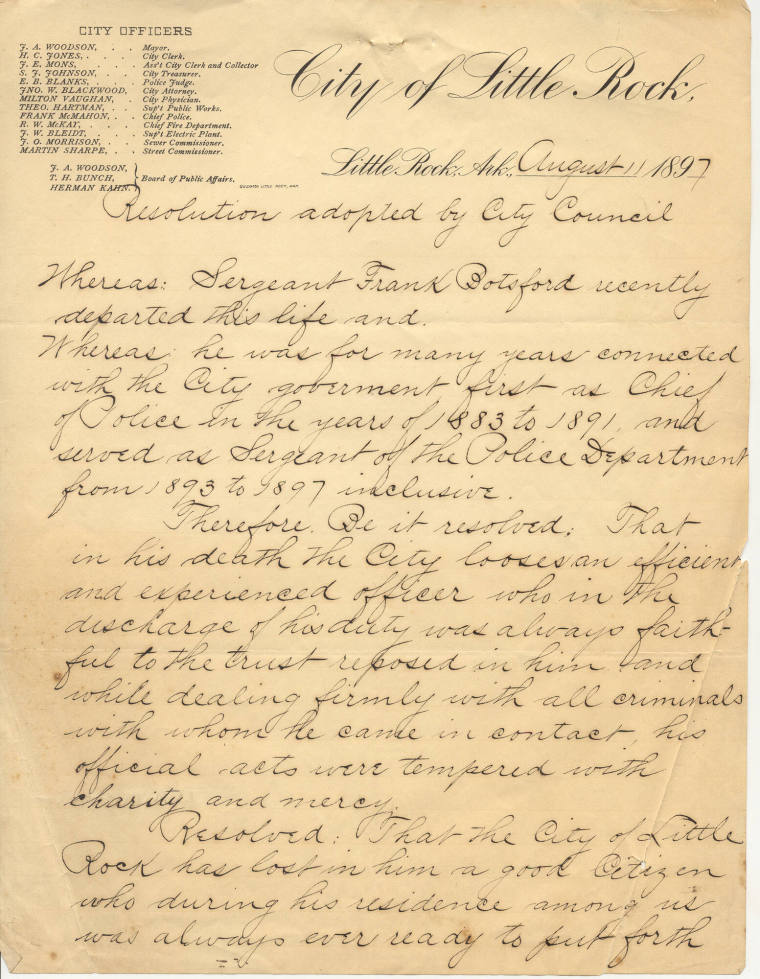 CITY OFFICERS
J. A. WOODSON, . . Mayor.
H. C. JONES, . . . City Clerk.
J. E. MONS, . . . Ass't City Clerk and Collector
S. J. JOHNSON, . . City Treasurer.
E. B. BLANKS, . . . Police Judge.
JNO. W. BLACKWOOD, City Attorney.
MILTON VAUGHAN, . City Physician.
THEO. HARTMAN, . . Sup't Public Works.
FRANK McMAHON, . . Chief Police.
R. W. McKAY, . . . Chief Fire Department.
J. W. BLEIDT, . . . Sup't Electric Plant.
J. O. MORRISON, . . Sewer Commissioner.
MARTIN SHARPE, . . Street Commissioner.
J. A. WOODSON,
T. H. BUNCH,
HERMAN KAHN.
Board of Public Affairs.
City of Little Rock.
Little Rock, Ark., August 11 1897
Resolution adopted by City Council
Whereas: Sergeant Frank Botsford recently
departed this life and.
Whereas: he was for many years connected
with the City goverment first as Chief
of Police in the years of 1883 to 1891, and
served as Sergeant of the Police Department
from 1893 to 1897 inclusive.
Therefore. Be it resolved: That
in his death the City looses an efficient
and experienced officer who in the
discharge of his duty was always faith-
ful to the trust reposed in him and
while dealing firmly with all criminals
with whom he came in contact, his
official acts were tempered with
charity and mercy.
Resolved: That the City of Little
Rock has lost in him a good Citizen
who during his residence among us
was always ever ready to put forth